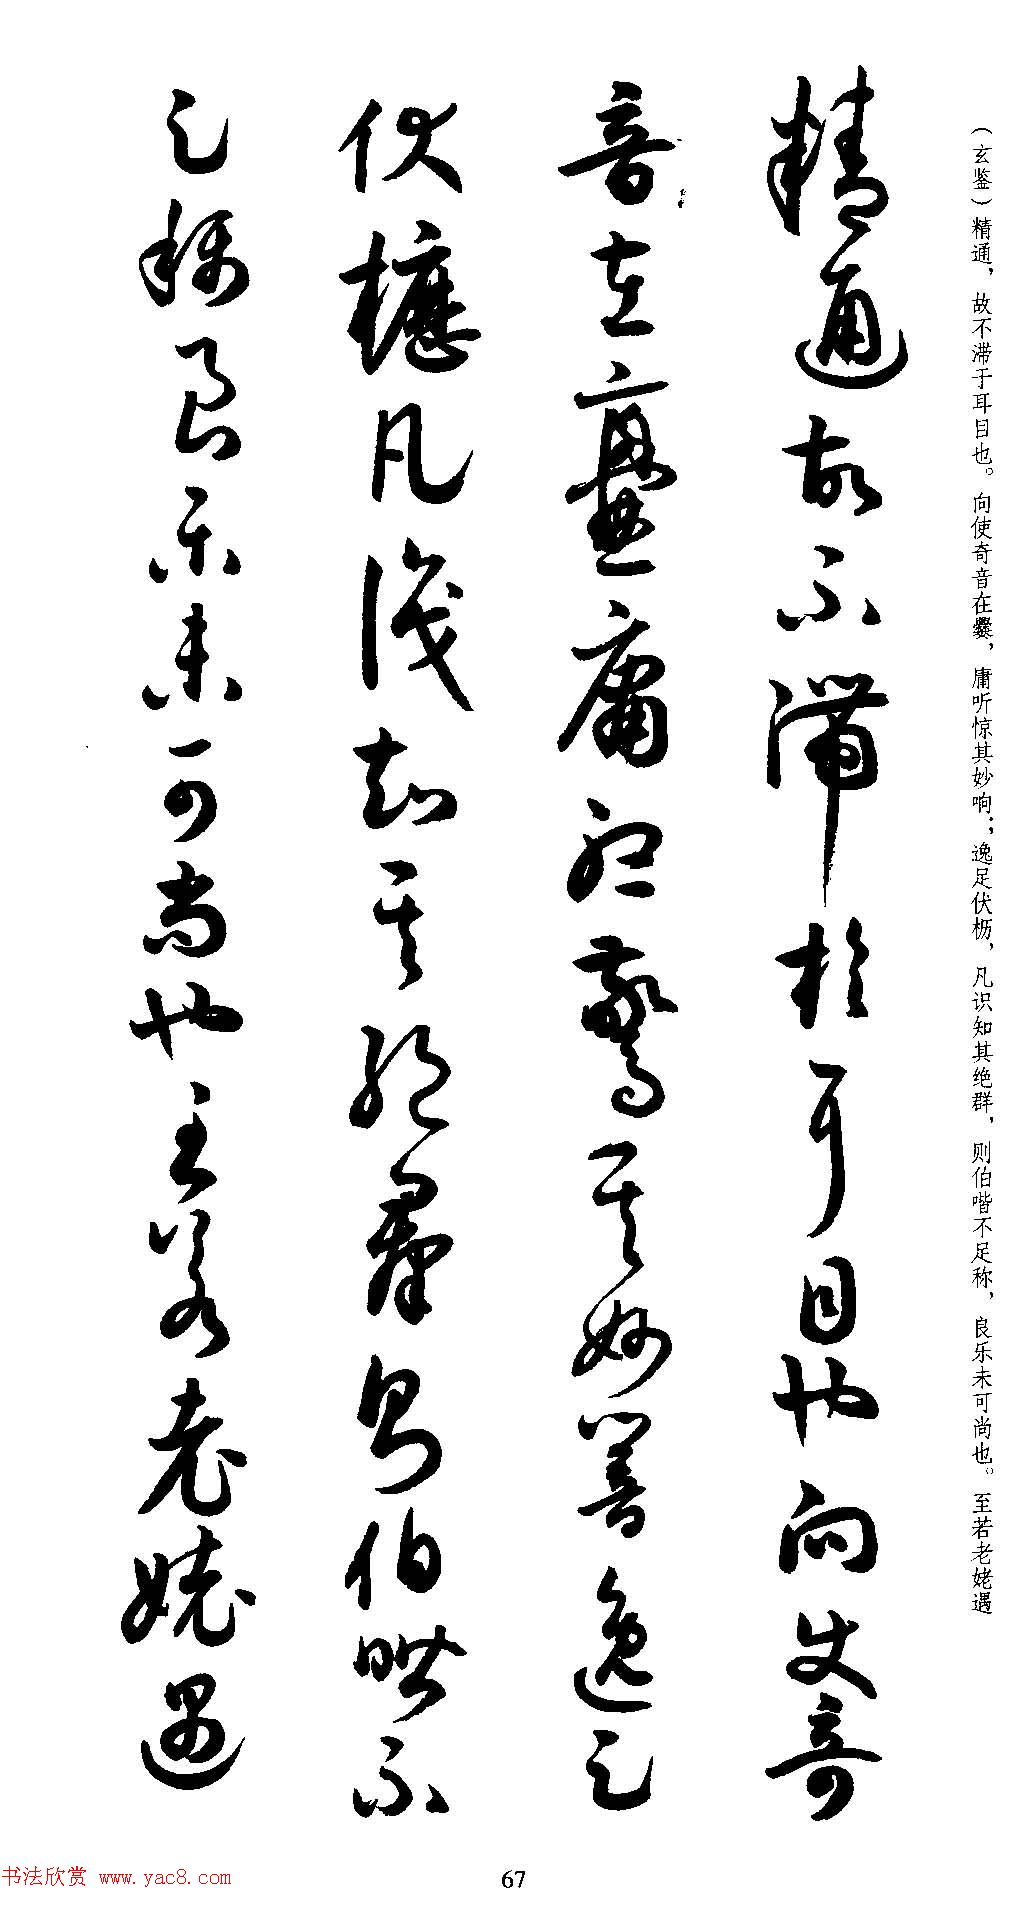 （玄鉴）精通，故不滞于耳目也。向使奇音在爨，庸听惊其妙响；逸足伏枥，凡识知其绝群，则伯喈不足称，良乐未可尚也。至若老姥遇
精通故不滞於耳目也向使奇
音在爨庸听驚其妙響逸足
伏櫪凡識知其絕群則伯喈不
足稱良樂未可尚也至若老姥遇
书法欣赏 www.yac8.com
67